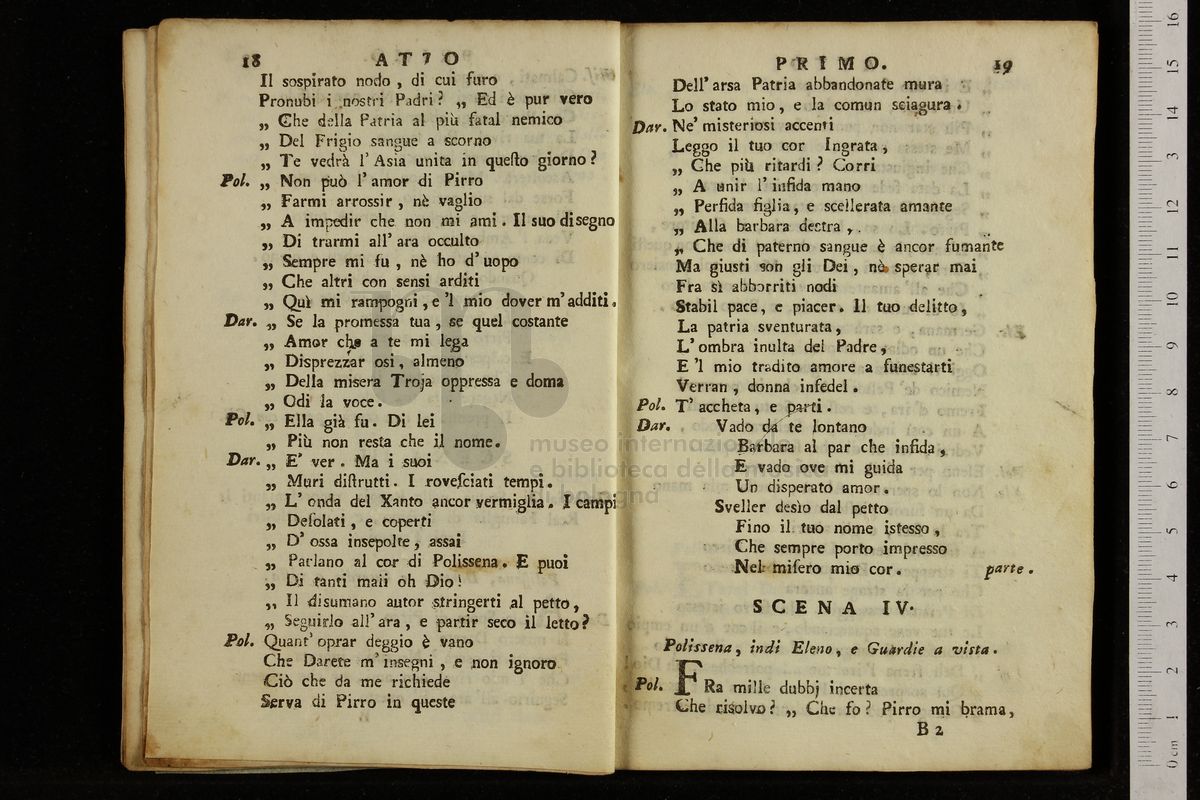 18 ATTO
Il sospirato nodo, di cui furo
Pronubi i nostri Padri? „ Ed è pur vero
„ Che della Patria al più fatal nemico
„ Del Frigio sangue a scorno
„ Te vedrà l' Asia unita in queſto giorno?
Pol. „ Non può l' amor di Pirro
„ Farmi arrossir, nè vaglio
„ A impedir che non mi ami. Il suo disegno
„ Di trarmi all' ara occulto
„ Sempre mi fu, nè ho d' uopo
„ Che altri con sensi arditi
„ Quì mi rampogni, e 'l mio dover m' additi.
Dar. „ Se la promessa tua, se quel costante
„ Amor che a te mi lega
„ Disprezzar osi, almeno
„ Della misera Troja oppressa e doma
„ Odi la voce.
Pol. „ Ella già fu. Di lei
„ Più non resta che il nome.
Dar. „ E' ver. Ma i suoi
„ Muri diſtrutti. I roveſciati tempi.
„ L' onda del Xanto ancor vermiglia. I campi
„ Deſolati, e coperti
„ D' ossa insepolte, assai
„ Parlano al cor di Polissena. E puoi
„ Di tanti mali oh Dio!
„ Il disumano autor stringerti al petto,
„ Seguirlo all' ara, e partir seco il letto?
Pol. Quant' oprar deggio è vano
Che Darete m' insegni, e non ignoro
Ciò che da me richiede
Serva di Pirro in queste
PRIMO. 19
Dell' arsa Patria abbandonate mura
Lo stato mio, e la comun sciagura.
Dar. Ne' misteriosi accenti
Leggo il tuo cor Ingrata,
„ Che più ritardi? Corri
„ A unir l' infida mano
„ Perfida figlia, e scellerata amante
„ Alla barbara destra,
„ Che di paterno sangue è ancor fumante
Ma giusti son gli Dei, nò sperar mai
Fra sì abborriti nodi
Stabil pace, e piacer. Il tuo delitto,
La patria sventurata,
L' ombra inulta del Padre,
E 'l mio tradito amore a funestarti
Verran, donna infedel.
Pol. T' accheta, e parti.
Dar. Vado da te lontano
Barbara al par che infida,
E vado ove mi guida
Un disperato amor.
Sveller desìo dal petto
Fino il tuo nome istesso,
Che sempre porto impresso
Nel miſero mio cor. parte.
SCENA IV.
Polissena, indi Eleno, e Guardie a vista.
Pol. FRa mille dubbj incerta
Che risolvo? „ Che fo? Pirro mi brama,
B 2
museo internazionale
e biblioteca della musica
di bologna
0 cm 1 2 3 4 5 6 7 8 9 10 11 12 13 14 15 16